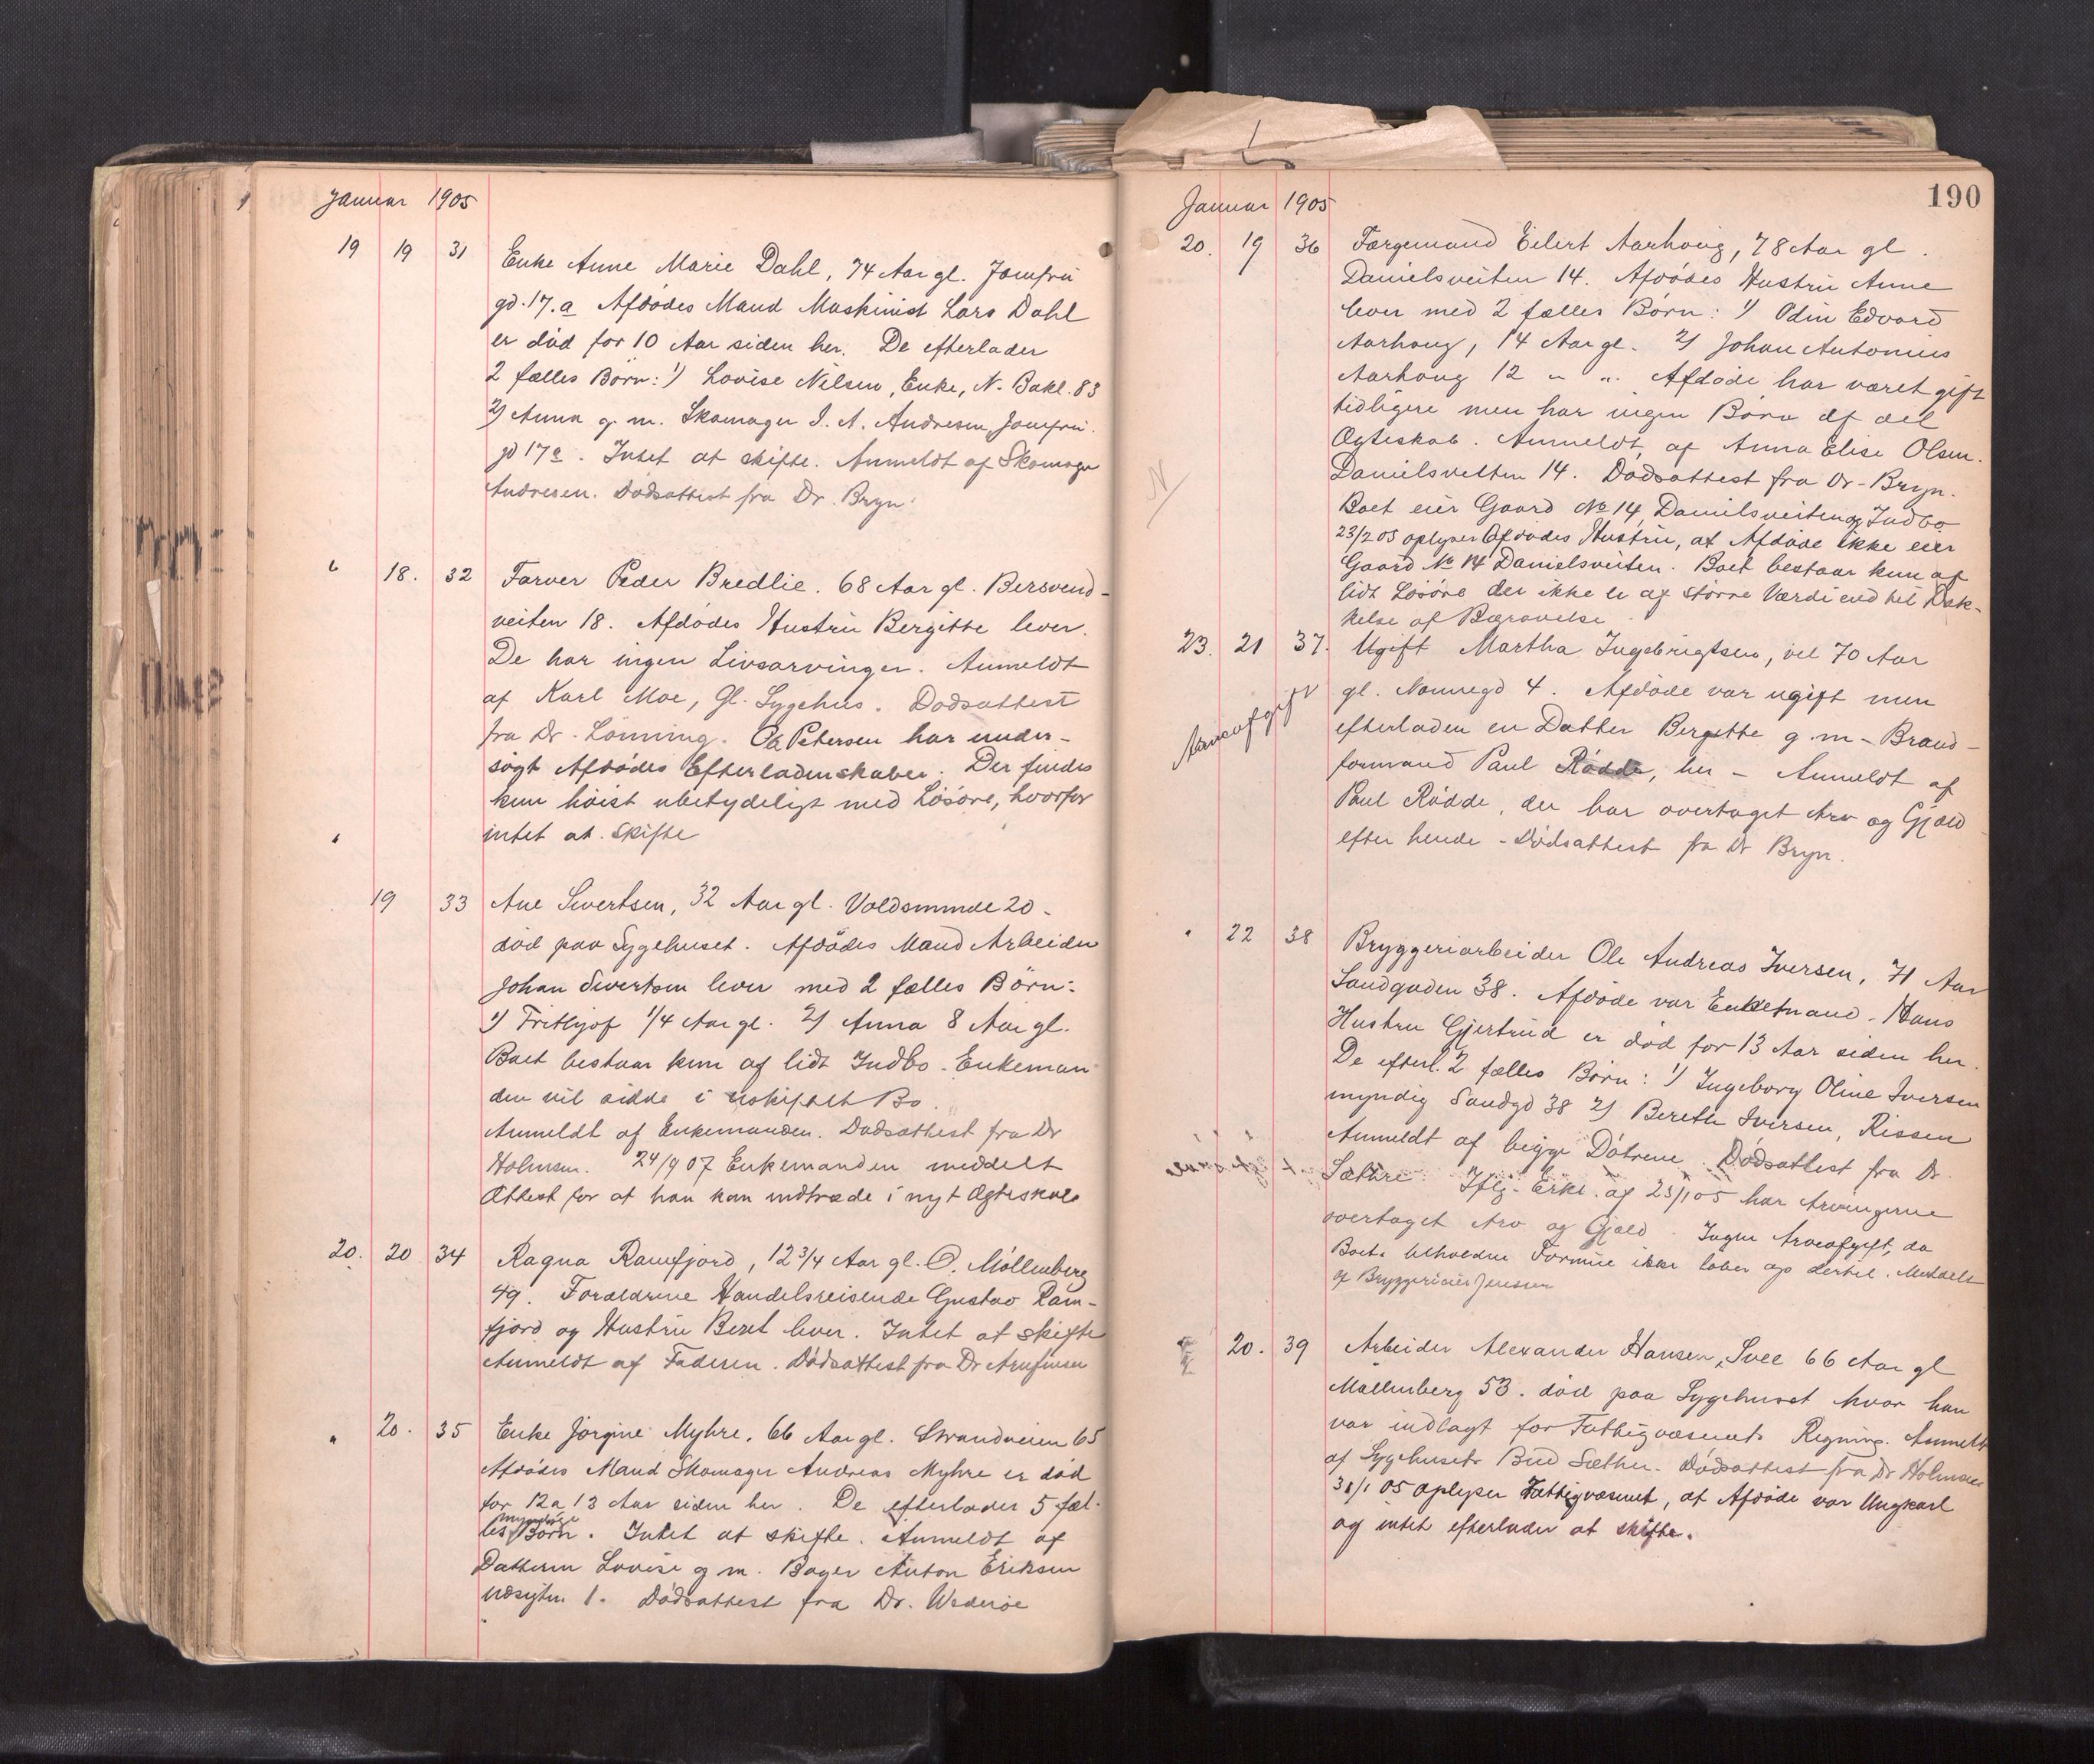 Januar 1905
19 19 31 Enke Anne Marie Dahl, 74 Aar gl. Jomfru
gd. 17.a Afdødes Mand Maskinist Lars Dahl
er død for 10 Aar siden her. De efterlader
2 fælles Børn: 1) Lovise Nilsen, Enke, N. Bakl. 83
2) Anna g. m. Skomager I. A. Andresen, Jomfru-
gd 17a. Intet at skifte. Anmeldt af Skomager
Andresen. Dødsattest fra Dr. Bryn.
" 18. 32 Farver Peder Bredlie. 68 Aar gl. Bersvend-
veiten 18. Afdødes Hustru Bergitte lever.
De har ingen Livsarvinger. Anmeldt
af Karl Moe, Gl. Sygehus. Dødsattest
fra Dr. Lønning. Petersen har under-
søgt Afdødes Efterladenskaber. Der findes
kun høist ubetydeligt med Løsøre, hvorfor
intet at skifte
" 19 33 Ane Sivertsen, 32 Aar gl. Voldsminde 20.
død paa Sygehuset. Afdødes Mand Arbeider
Johan Sivertsen lever med 2 fælles Børn:
1) Frithjof 1/4 Aar gl. 2) Anna 8 Aar gl.
Boet bestaar kun af lidt Indbo. Enkeman
den vil sidde i uskiftet Bo.
Anmeldt af Enkemanden. Dødsattest fra Dr
Holmsen. 24/9 07 Enkemanden meddelt
Attest for at han kan indtræde i nyt Ægteskab
20. 20 34 Ragna Ramfjord, 12 3/4 Aar gl. Ø. Møllenberg
49. Forældrene Handelsreisende Gustav Ram-
fjord og Hustru Beret lever. Intet at skifte
Anmeldt af Faderen. Dødsattest fra Dr Arnfinsen
" 20. 35 Enke Jørgine Myhre, 66 Aar gl. Strandveien 65
Afdødes Mand Skomager Andreas Myhre er død
for 12 a 13 Aar siden her. De efterlader 5 fæl-
les myndige Børn. Intet at skifte. Anmeldt af
Datteren Lovise g. m. Bager Anton Eriksen
Udsigten 1. Dødsattest fra Dr. Widerøe
190
Januar 1905
20. 19 36 Færgemand Eilert Aarhoug, 78 Aar gl.
Danielsveiten 14. Afdødes Hustru Anne
lever med 2 fælles Børn: 1) Odin Edvard
Aarhoug, 14 Aar gl. 2) Johan Antonius
Aarhoug 12 " ". Afdøde har været gift
tidligere men har ingen Børn af det
Ægteskab. Anmeldt af Anna Elise Olsen.
Danielsveiten 14. Dødsattest fra Dr. Bryn.
N
Boet eier Gaard No 14 Danielsveiten og Indbo
23/2 05 oplyser Afdødes Hustru, at Afdøde ikke eier
Gaard No 14 Danielsveiten. Boet bestaar kun af
lidt Løsøre der ikke er af større Værdi end til Dæk-
kelse af Begravelse.
23. 21 37. Ugift Martha Ingebrigtsen, vel 70 Aar
gl. Nonnegd 4. Afdøde var ugift men
Arveafgift
efterlader en Datter Bergitte g. m. Brand-
formand Paul Rødde, her - Anmeldt af
Paul Rødde, der har overtaget Arv og Gjæld
efter hende. Dødsattest fra Dr Bryn.
" 22 38 Bryggeriarbeider Ole Andreas Iversen, 71 Aar
Sandgaden 38. Afdøde var Enkemand. Hans
Hustru Gjertrud er død for 13 Aar siden her.
De efterl. 2 fælles Børn: 1) Ingeborg Oline Iversen
myndig Sandgd 38 2) Bereth Iversen, Rissen
Anmeldt af begge Døtrene. Dødsattest fra Dr.
Sæthre. Iflg. Erkl. af 23/1 05 har Arvingerne
overtaget Arv og Gjæld. Ingen Arveafgift, da
Boets beholdne Formue ikke løber op dertil. Meddelt
af Bryggerieier Jenssen
20. 39 Arbeider Alexander Hansen, Svee 66 Aar gl
Møllenberg 53. død paa Sygehuset hvor han
var indlagt for Fattigvæsenets Regning. Anmeldt
af Sygehusets Bud Sæther. Dødsattest fra Dr Holmsen
31/1 05 oplyser Fattigvæsenet, at Afdøde var Ungkarl
og intet efterlader at skifte.